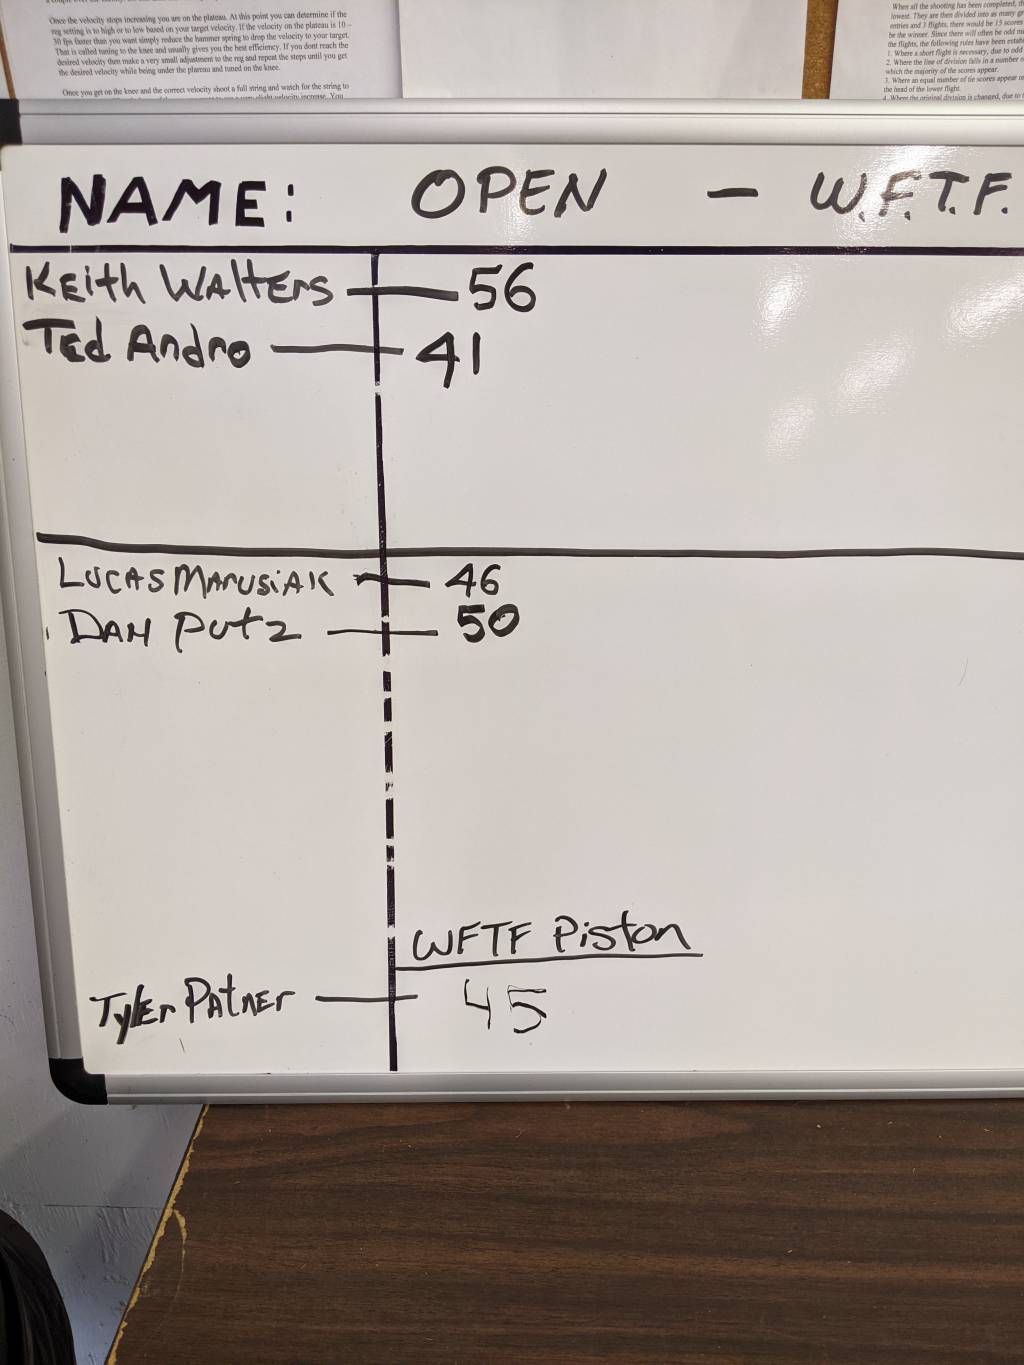 Once the velocity stops increasing you are on the plateau. At this point you can determine if the
reg setting is to high or to low based on your target velocity. If the velocity on the plateau is 10 –
30 fps faster than you want simply reduce the hammer spring to drop the velocity to your target.
That is called tuning to the knee and usually gives you the best efficiency. If you dont reach the
desired velocity then make a very small adjustment to the reg and repeat the steps until you get
the desired velocity while being under the plateau and tuned on the knee.
Once you get on the knee and the correct velocity shoot a full string and watch for the string to
When all the shooting has been completed,
lowest. They are then divided into as many
entries and 3 flights, there would be 15 scores
be the winner. Since there will often be odd
the flights, the following rules have been
1. Where a short flight is necessary, due to odd
2. Where the line of division falls in a number
which the majority of the scores appear.
3. Where an equal number of tie scores appear
the head of the lower flight.
4. Where the original division is changed, due to
NAME: OPEN — W.F.T.F.
KEith WAltErs — 56
TEd Andro — 41
LUCAS MArUSiAK — 46
DAN Putz — 50
WFTF Piston
TylEr PAtnEr — 45